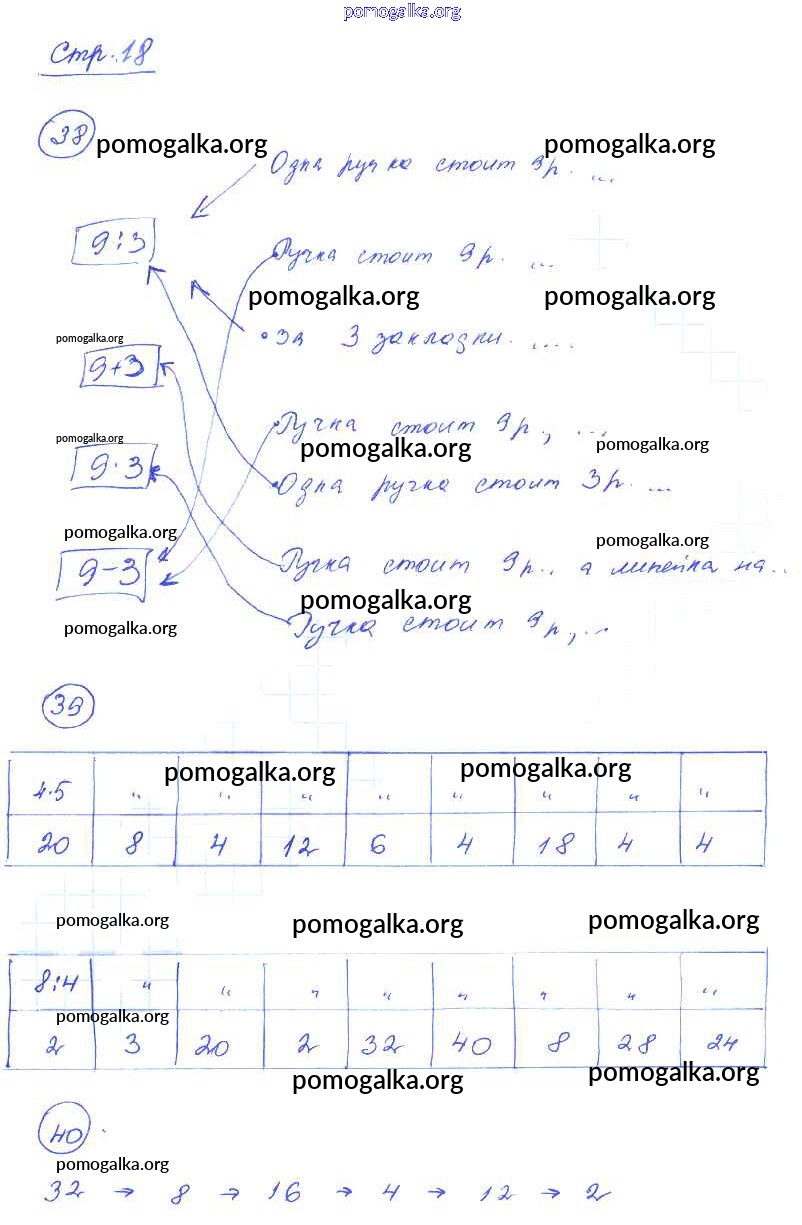 pomogalka.org
Стр. 18
38
pomogalka.org pomogalka.org
Одна ручка стоит 9р. ...
9:3
Ручка стоит 9р. ...
pomogalka.org pomogalka.org
pomogalka.org
• За 3 закладки. ....
9+3
Ручка стоит 9р, ...
pomogalka.org
pomogalka.org pomogalka.org
9·3
Одна ручка стоит 3р. ...
pomogalka.org
pomogalka.org
9-3
Ручка стоит 9р., а линейка на...
pomogalka.org
pomogalka.org
Ручка стоит 9р, ...
39
pomogalka.org pomogalka.org
4·5 " " " " " " " "
20 8 4 12 6 4 18 4 4
pomogalka.org pomogalka.org pomogalka.org
8:4 " " " " " " " "
pomogalka.org
2 3 20 2 32 40 8 28 24
pomogalka.org pomogalka.org
40.
pomogalka.org
32 → 8 → 16 → 4 → 12 → 2